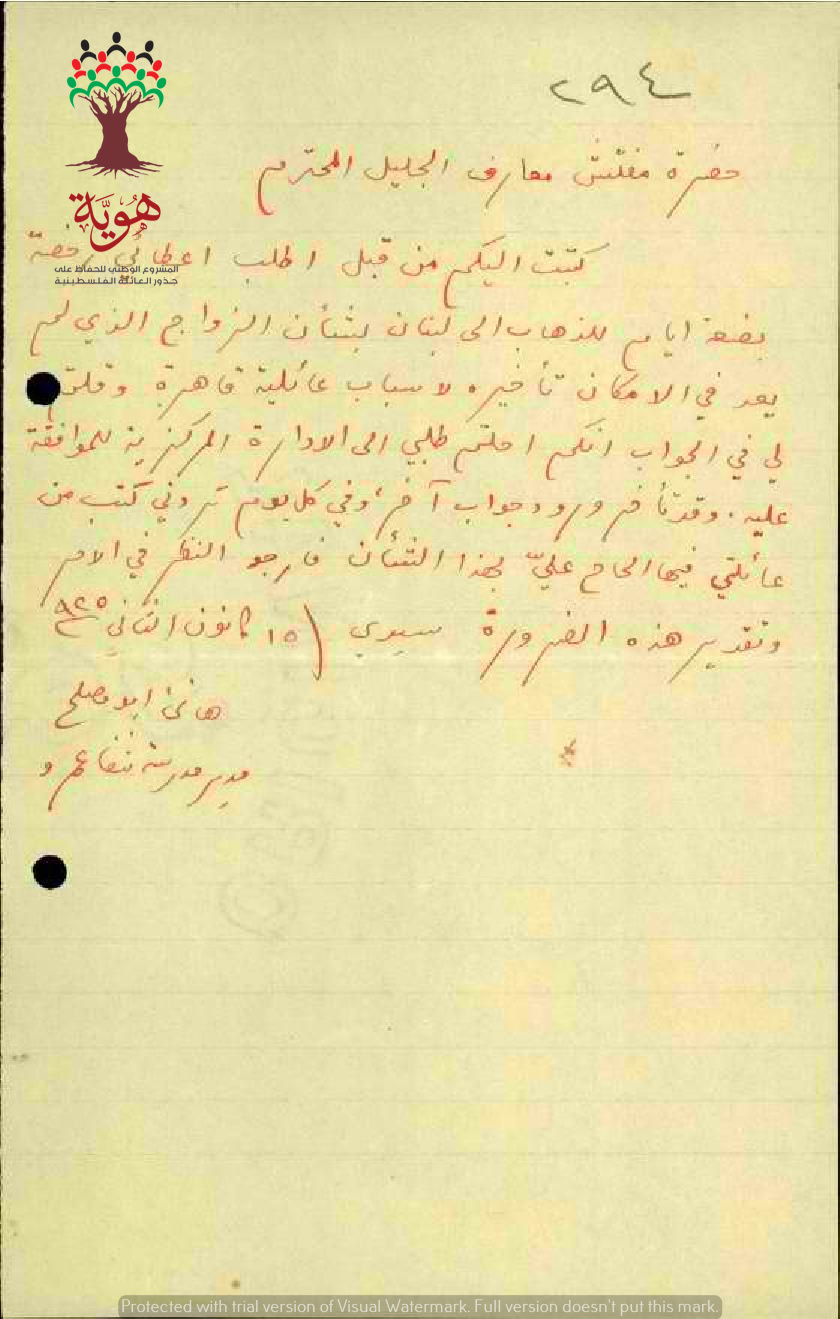 ٢٩٤
حضرة مفتش معارف الجليل المحترم
هُويّة
المشروع الوطني للحفاظ على
جذور العائلة الفلسطينية
كتبت اليكم من قبل اطلب اعطائي رخصة
بضعة ايام للذهاب الى لبنان بشأن الزواج الذي لم
يعد في الامكان تأخيره لاسباب عائلية قاهرة وقلتم
لي في الجواب انكم احلتم طلبي الى الادارة المركزية للموافقة
عليه. وقد تأخر ورود جواب آخر، وفي كل يوم تردني كتب من
عائلتي فيها الحاح عليّ بهذا الشأن فارجو النظر في الامر
وتقدير هذه الضرورة سيدي ١٥ كانون الثاني ٩٢٥
هاني ابو مصلح
مدير مدرسة شفاعمرو
Protected with trial version of Visual Watermark. Full version doesn't put this mark.